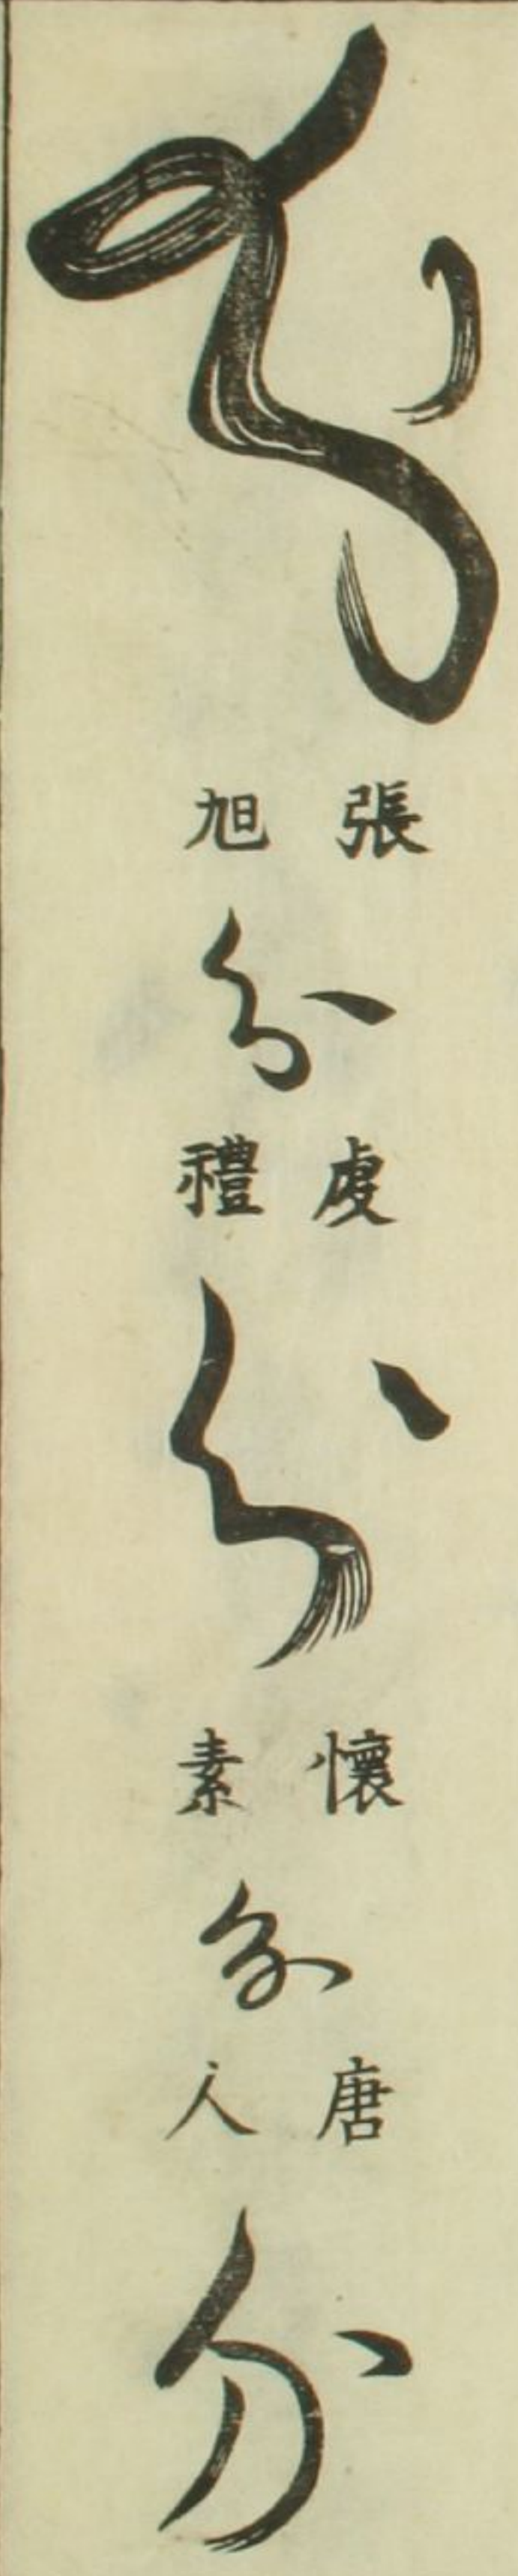 分
張旭
分
虔禮
分
懷素
分
唐人
分